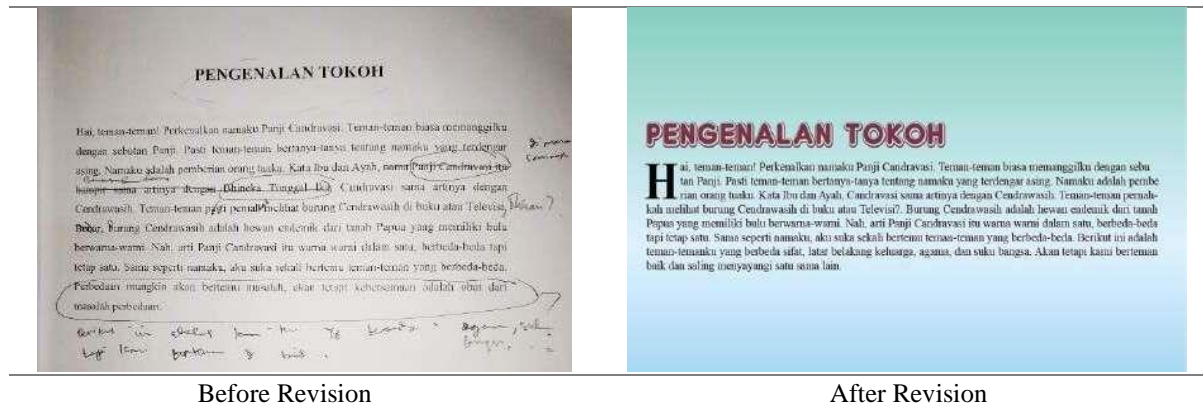 PENGENALAN TOKOH
Hai, teman-teman! Perkenalkan namaku Panji Candravasi. Teman-teman biasa memanggilku
dengan sebutan Panji. Pasti teman-teman bertanya-tanya tentang namaku yang terdengar
asing. Namaku adalah pemberian orang tuaku. Kata Ibu dan Ayah, nama Panji Candravasi itu
hampir sama artinya dengan Bhineka Tunggal Ika. Candravasi sama artinya dengan
Cendrawasih. Teman-teman pasti pernah melihat burung Cendrawasih di buku atau Televisi,
Burung Cendrawasih adalah hewan endemik dari tanah Papua yang memiliki bulu
berwarna-warni. Nah, arti Panji Candravasi itu warna warni dalam satu, berbeda-beda tapi
tetap satu. Sama seperti namaku, aku suka sekali bertemu teman-teman yang berbeda-beda.
Perbedaan mungkin akan bertemu masalah, akan tetapi kebersamaan adalah obat dari
masalah perbedaan.
Before Revision
PENGENALAN TOKOH
Hai, teman-teman! Perkenalkan namaku Panji Candravasi. Teman-teman biasa memanggilku dengan sebu
tan Panji. Pasti teman-teman bertanya-tanya tentang namaku yang terdengar asing. Namaku adalah pembe
rian orang tuaku. Kata Ibu dan Ayah, Candravasi sama artinya dengan Cendrawasih. Teman-teman pernah-
kah melihat burung Cendrawasih di buku atau Televisi?. Burung Cendrawasih adalah hewan endemik dari tanah
Papua yang memiliki bulu berwarna-warni. Nah, arti Panji Candravasi itu warna warni dalam satu, berbeda-beda
tapi tetap satu. Sama seperti namaku, aku suka sekali bertemu teman-teman yang berbeda-beda. Berikut ini adalah
teman-temanku yang berbeda sifat, latar belakang keluarga, agama, dan suku bangsa. Akan tetapi kami berteman
baik dan saling menyayangi satu sama lain.
After Revision